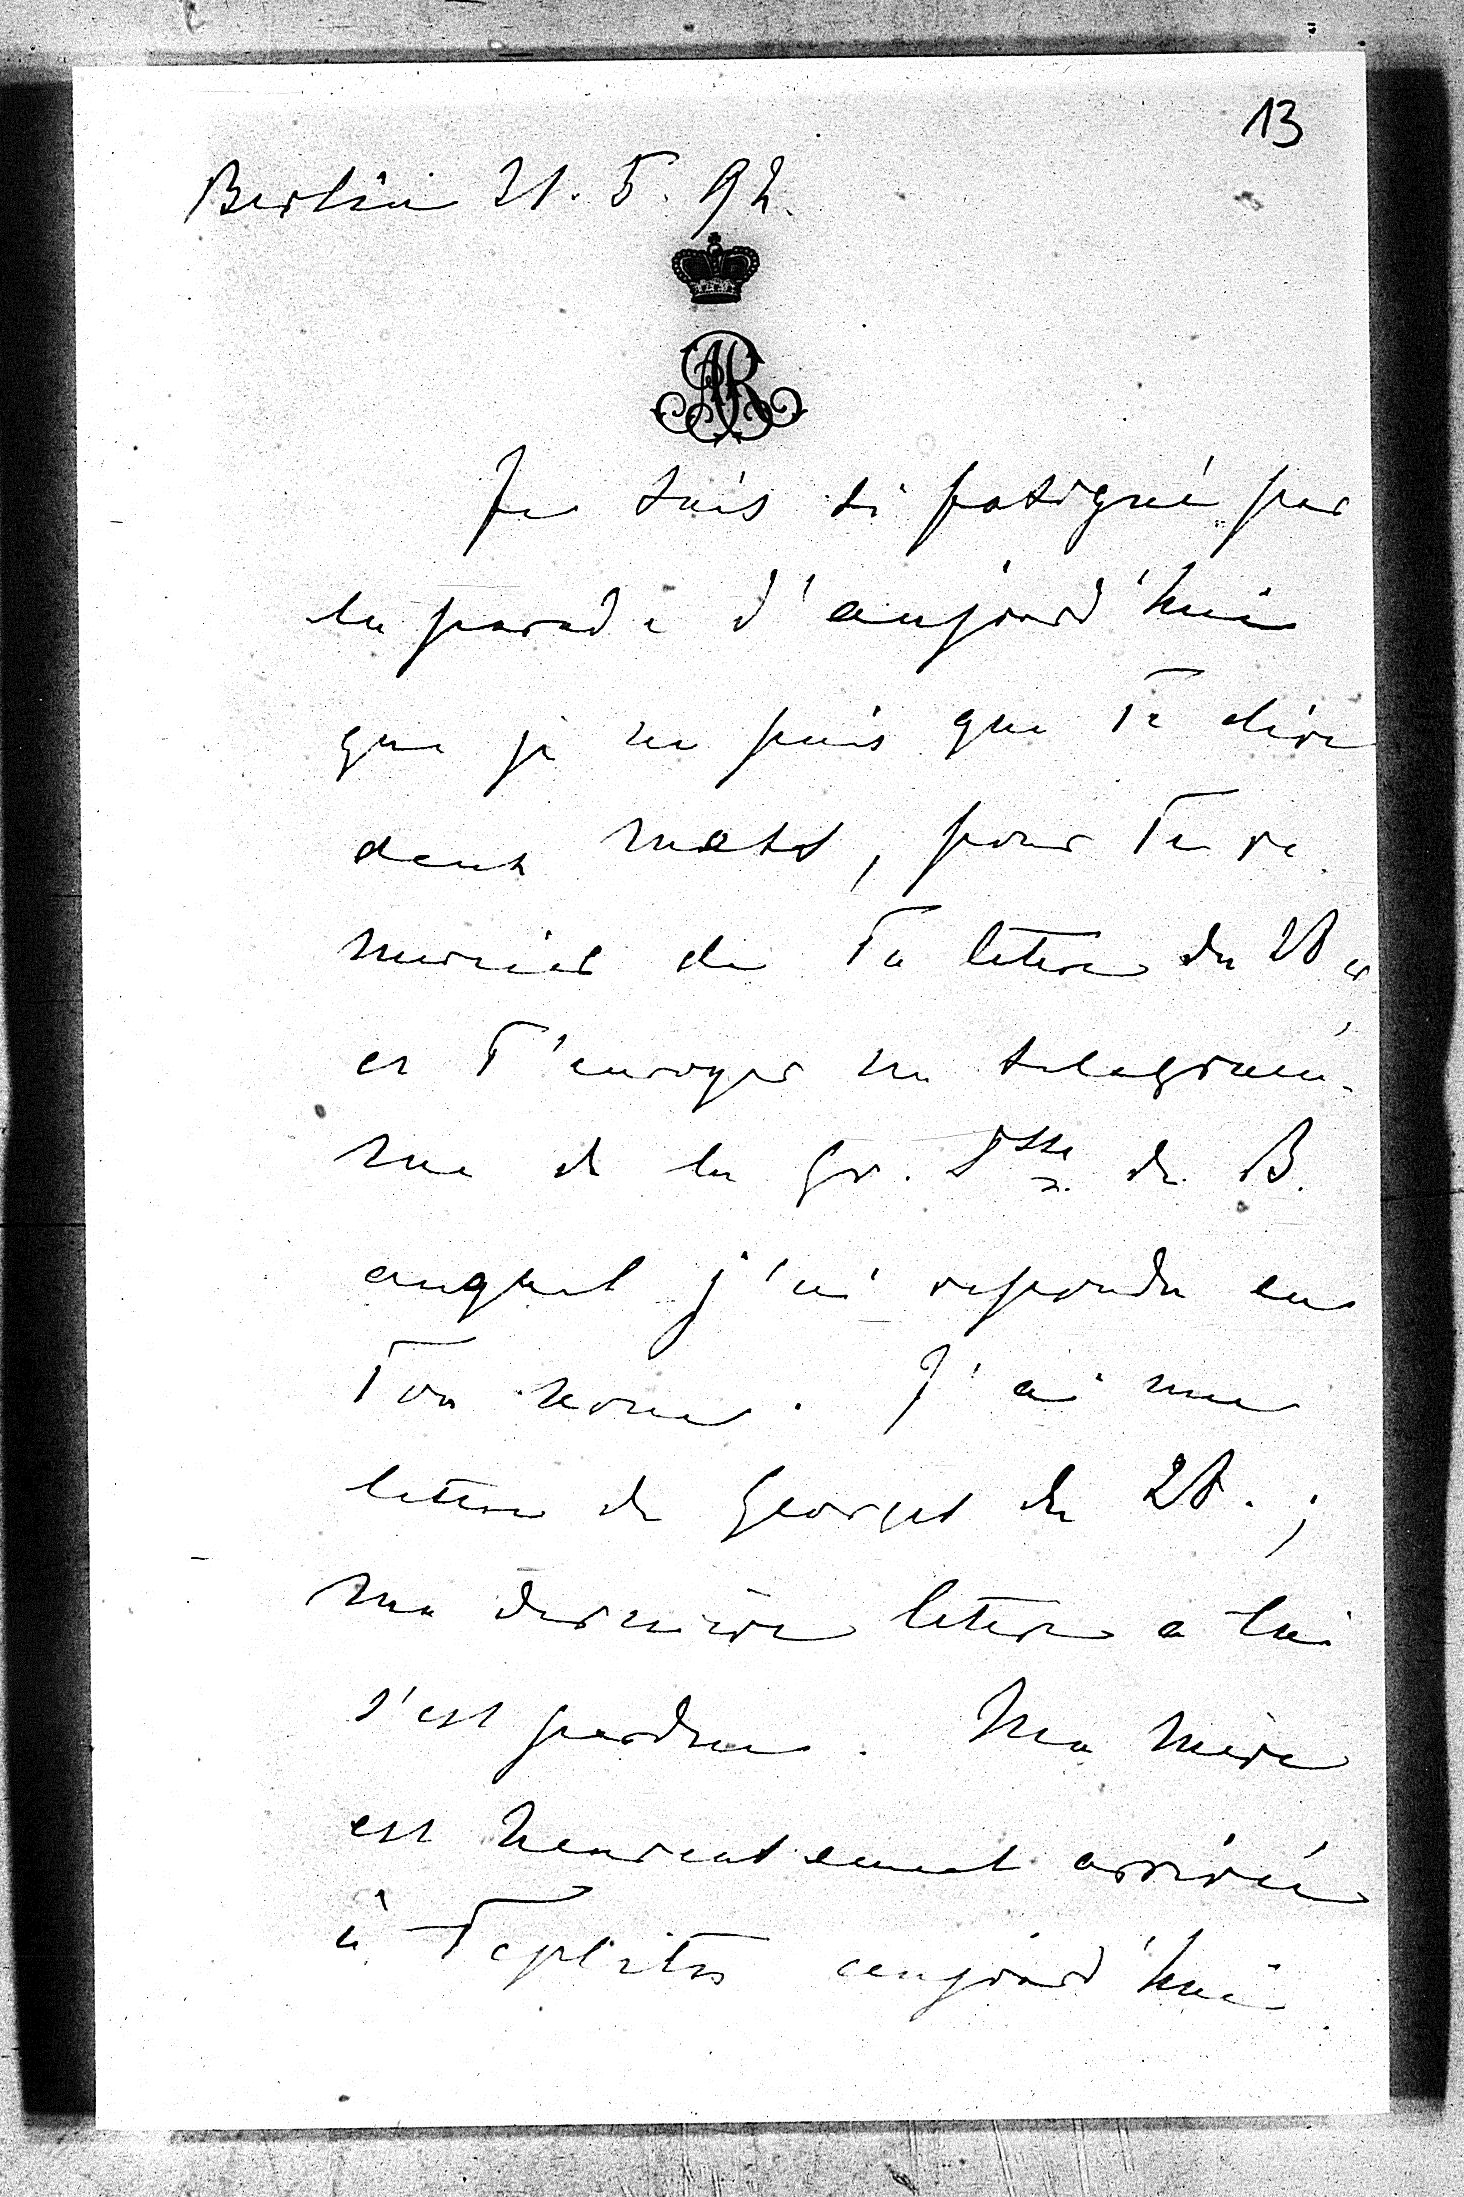 13
Berlin 31. 5. 92.
AR
Je suis si fatigué par
la parade d'aujourd'hui
que je ne puis que Te dire
deux mots, pour Te re
mercier de Ta lettre du 28
et T'envoyer un telegram-
me de la Gr. Dsse de B.
auquel j'ai repondu en
Ton nom. J'ai une
lettre de Georges du 28. ;
ma dernière lettre a lui
s'est perdue. Ma mère
est heureusement arrivée
à Teplitz aujourd'hui.